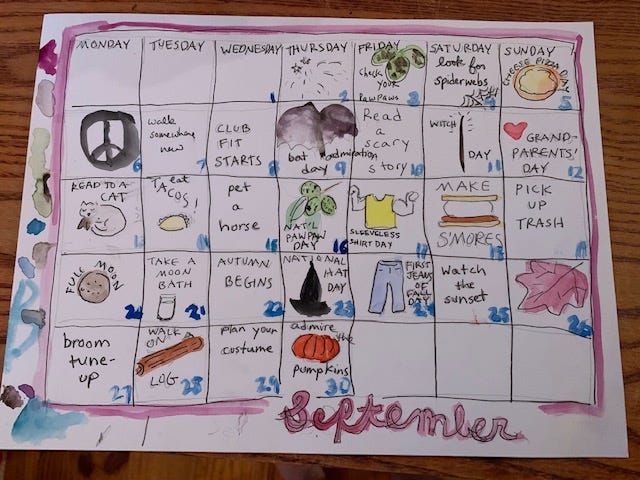 MONDAY
TUESDAY
WEDNESDAY
THURSDAY
FRIDAY
SATURDAY
SUNDAY
1
2
Check
YOUR
PAWPAWS
3
look for
spiderwebs
4
CHEESE PIZZA DAY
5
6
walk
somewhere
new
7
CLUB
FIT
STARTS
8
bat admiration
day
9
Read
a
scary
story
10
WITCH
DAY
11
GRAND-
PARENTS'
DAY
12
READ TO A
CAT
13
eat
TACOS!
14
pet
a
horse
15
NAT'L
PAWPAW
DAY
16
SLEEVELESS
SHIRT DAY
17
MAKE
S'MORES
18
PICK
UP
TRASH
19
FULL MOON
20
TAKE A
MOON
BATH
21
AUTUMN
BEGINS
22
NATIONAL
HAT
DAY
23
FIRST
JEANS
OF
FALL
DAY
24
Watch
the
sunset
25
26
broom
tune-
up
27
WALK
ON
LOG
28
plan your
costume
29
admire the
pumpkins
30
September